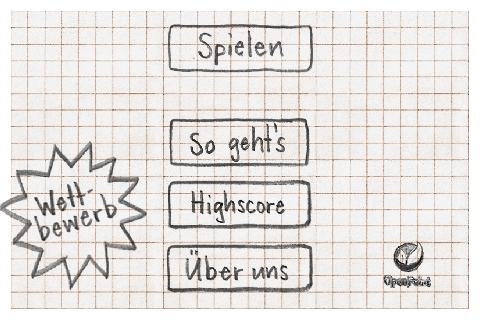 Spielen
So geht's
Wett-
bewerb
Highscore
Über uns
OpenPoint